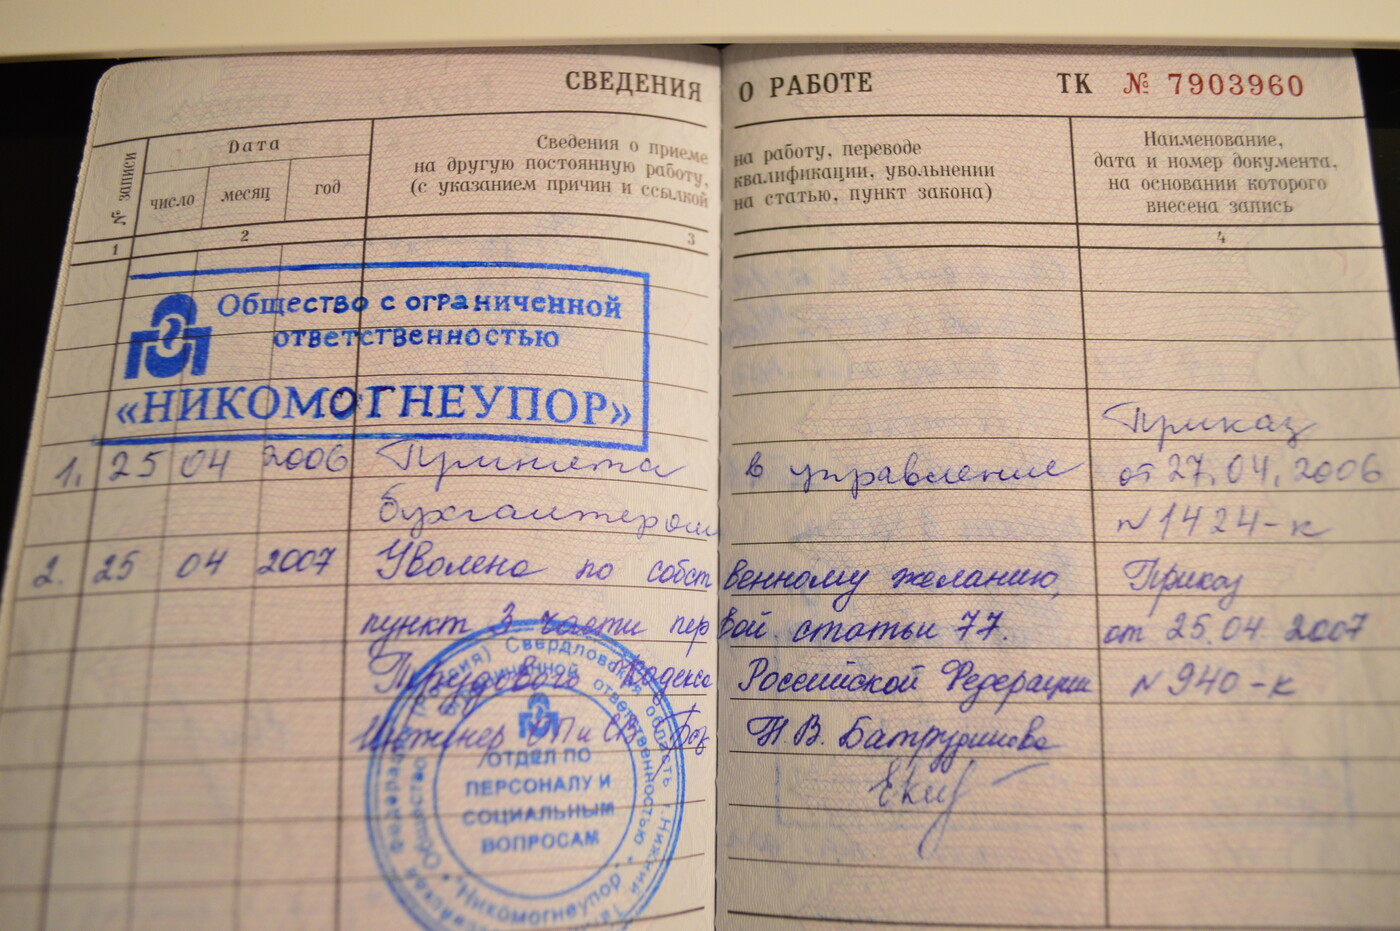 СВЕДЕНИЯ О РАБОТЕ ТК № 7903960
№ записи
Дата
число месяц год
Сведения о приеме на работу, переводе
на другую постоянную работу, квалификации, увольнении
(с указанием причин и ссылкой на статью, пункт закона)
Наименование,
дата и номер документа,
на основании которого
внесена запись
1 2 3 4
Общество с ограниченной
ответственностью
«НИКОМОГНЕУПОР»
Приказ
1. 25 04 2006 Принята в управление от 27.04.2006
бухгалтером №1424-к
2. 25 04 2007 Уволена по собственному желанию, Приказ
пункт 3 части первой статьи 77. от 25.04 2007
Трудового Кодекса Российской Федерации №940-к
Инженер Н.В.
ОТДЕЛ ПО
ПЕРСОНАЛУ И
СОЦИАЛЬНЫМ
ВОПРОСАМ
Свердловская область г. Нижний
Общество с ограниченной ответственностью
"Никомогнеупор"